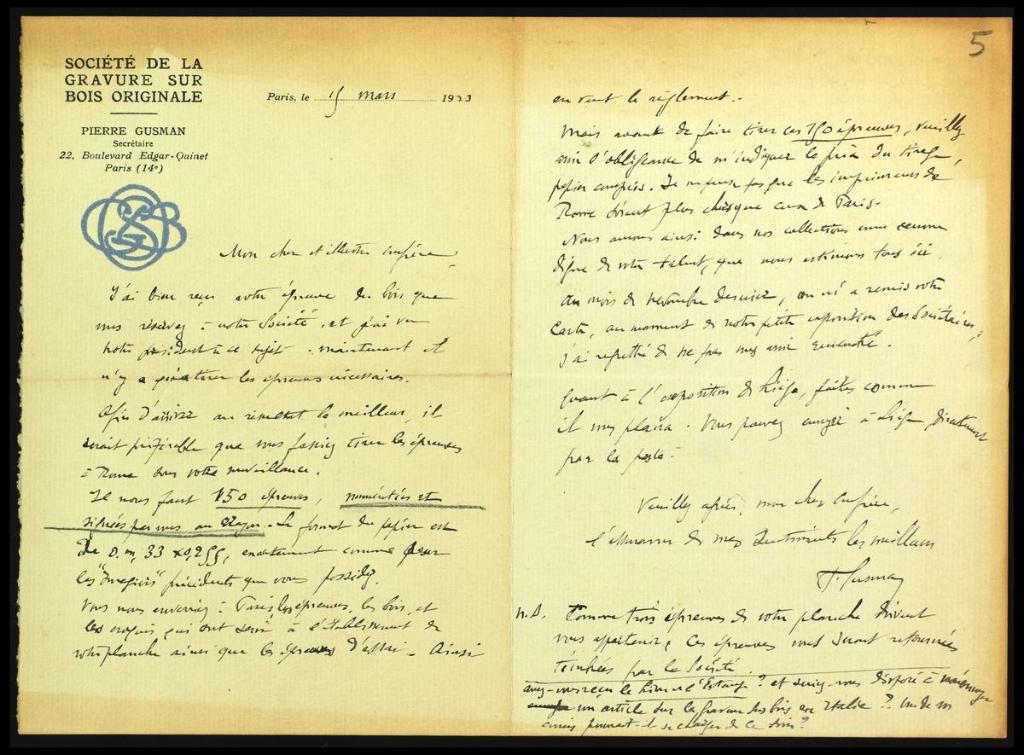 5
SOCIÉTÉ DE LA
GRAVURE SUR
BOIS ORIGINALE
Paris, le 15 mars 1933
PIERRE GUSMAN
Secrétaire
22, Boulevard Edgar-Quinet
Paris (14e)
Mon cher et illustre confrère,
J'ai bien reçu votre épreuve du bois que
vous réservez à notre Société, et j'ai vu
notre président à ce sujet. maintenant il
n'y a qu'à tirer les épreuves nécessaires.
Afin d'arriver au résultat le meilleur, il
serait préférable que vous fassiez tirer les épreuves
à Rome sous votre surveillance.
Il nous faut 150 épreuves, numérotées et
signées par vous au crayon. Le format du papier est
de 0.m,33 x 0,255, exactement comme pour
les "Imagiers" précédents que vous possédez.
Vous nous enverriez à Paris les épreuves, les bois, et
les croquis qui ont servi à l'établissement de
votre planche ainsi que les épreuves d'essai. Ainsi
en veut le règlement.
Mais avant de faire tirer ces 150 épreuves, veuillez
avoir l'obligeance de m'indiquer le prix du tirage,
papier compris. Je ne pense pas que les imprimeurs de
Rome soient plus chers que ceux de Paris.
Nous aurons ainsi dans nos collections une oeuvre
digne de votre talent, que nous estimons tous ici.
Au mois de novembre dernier, on m'a remis votre
carte, au moment de notre petite exposition des Sociétaires,
j'ai regretté de ne pas vous avoir rencontré.
Quant à l'exposition de Liège, faites comme
il vous plaira. Vous pouvez envoyer à Liège directement
par la poste.
Veuillez agréer, mon cher confrère,
l'assurance de mes sentiments les meilleurs
P. Gusman
N.B. Comme trois épreuves de votre planche doivent
vous appartenir, ces épreuves vous seront retournées
timbrées par la Société.
avez-vous reçu le livre de l'Estampe? et seriez-vous disposé à
un article sur la gravure sur bois en Italie? Un de vos
amis pourrait-il se charger de ce soin?